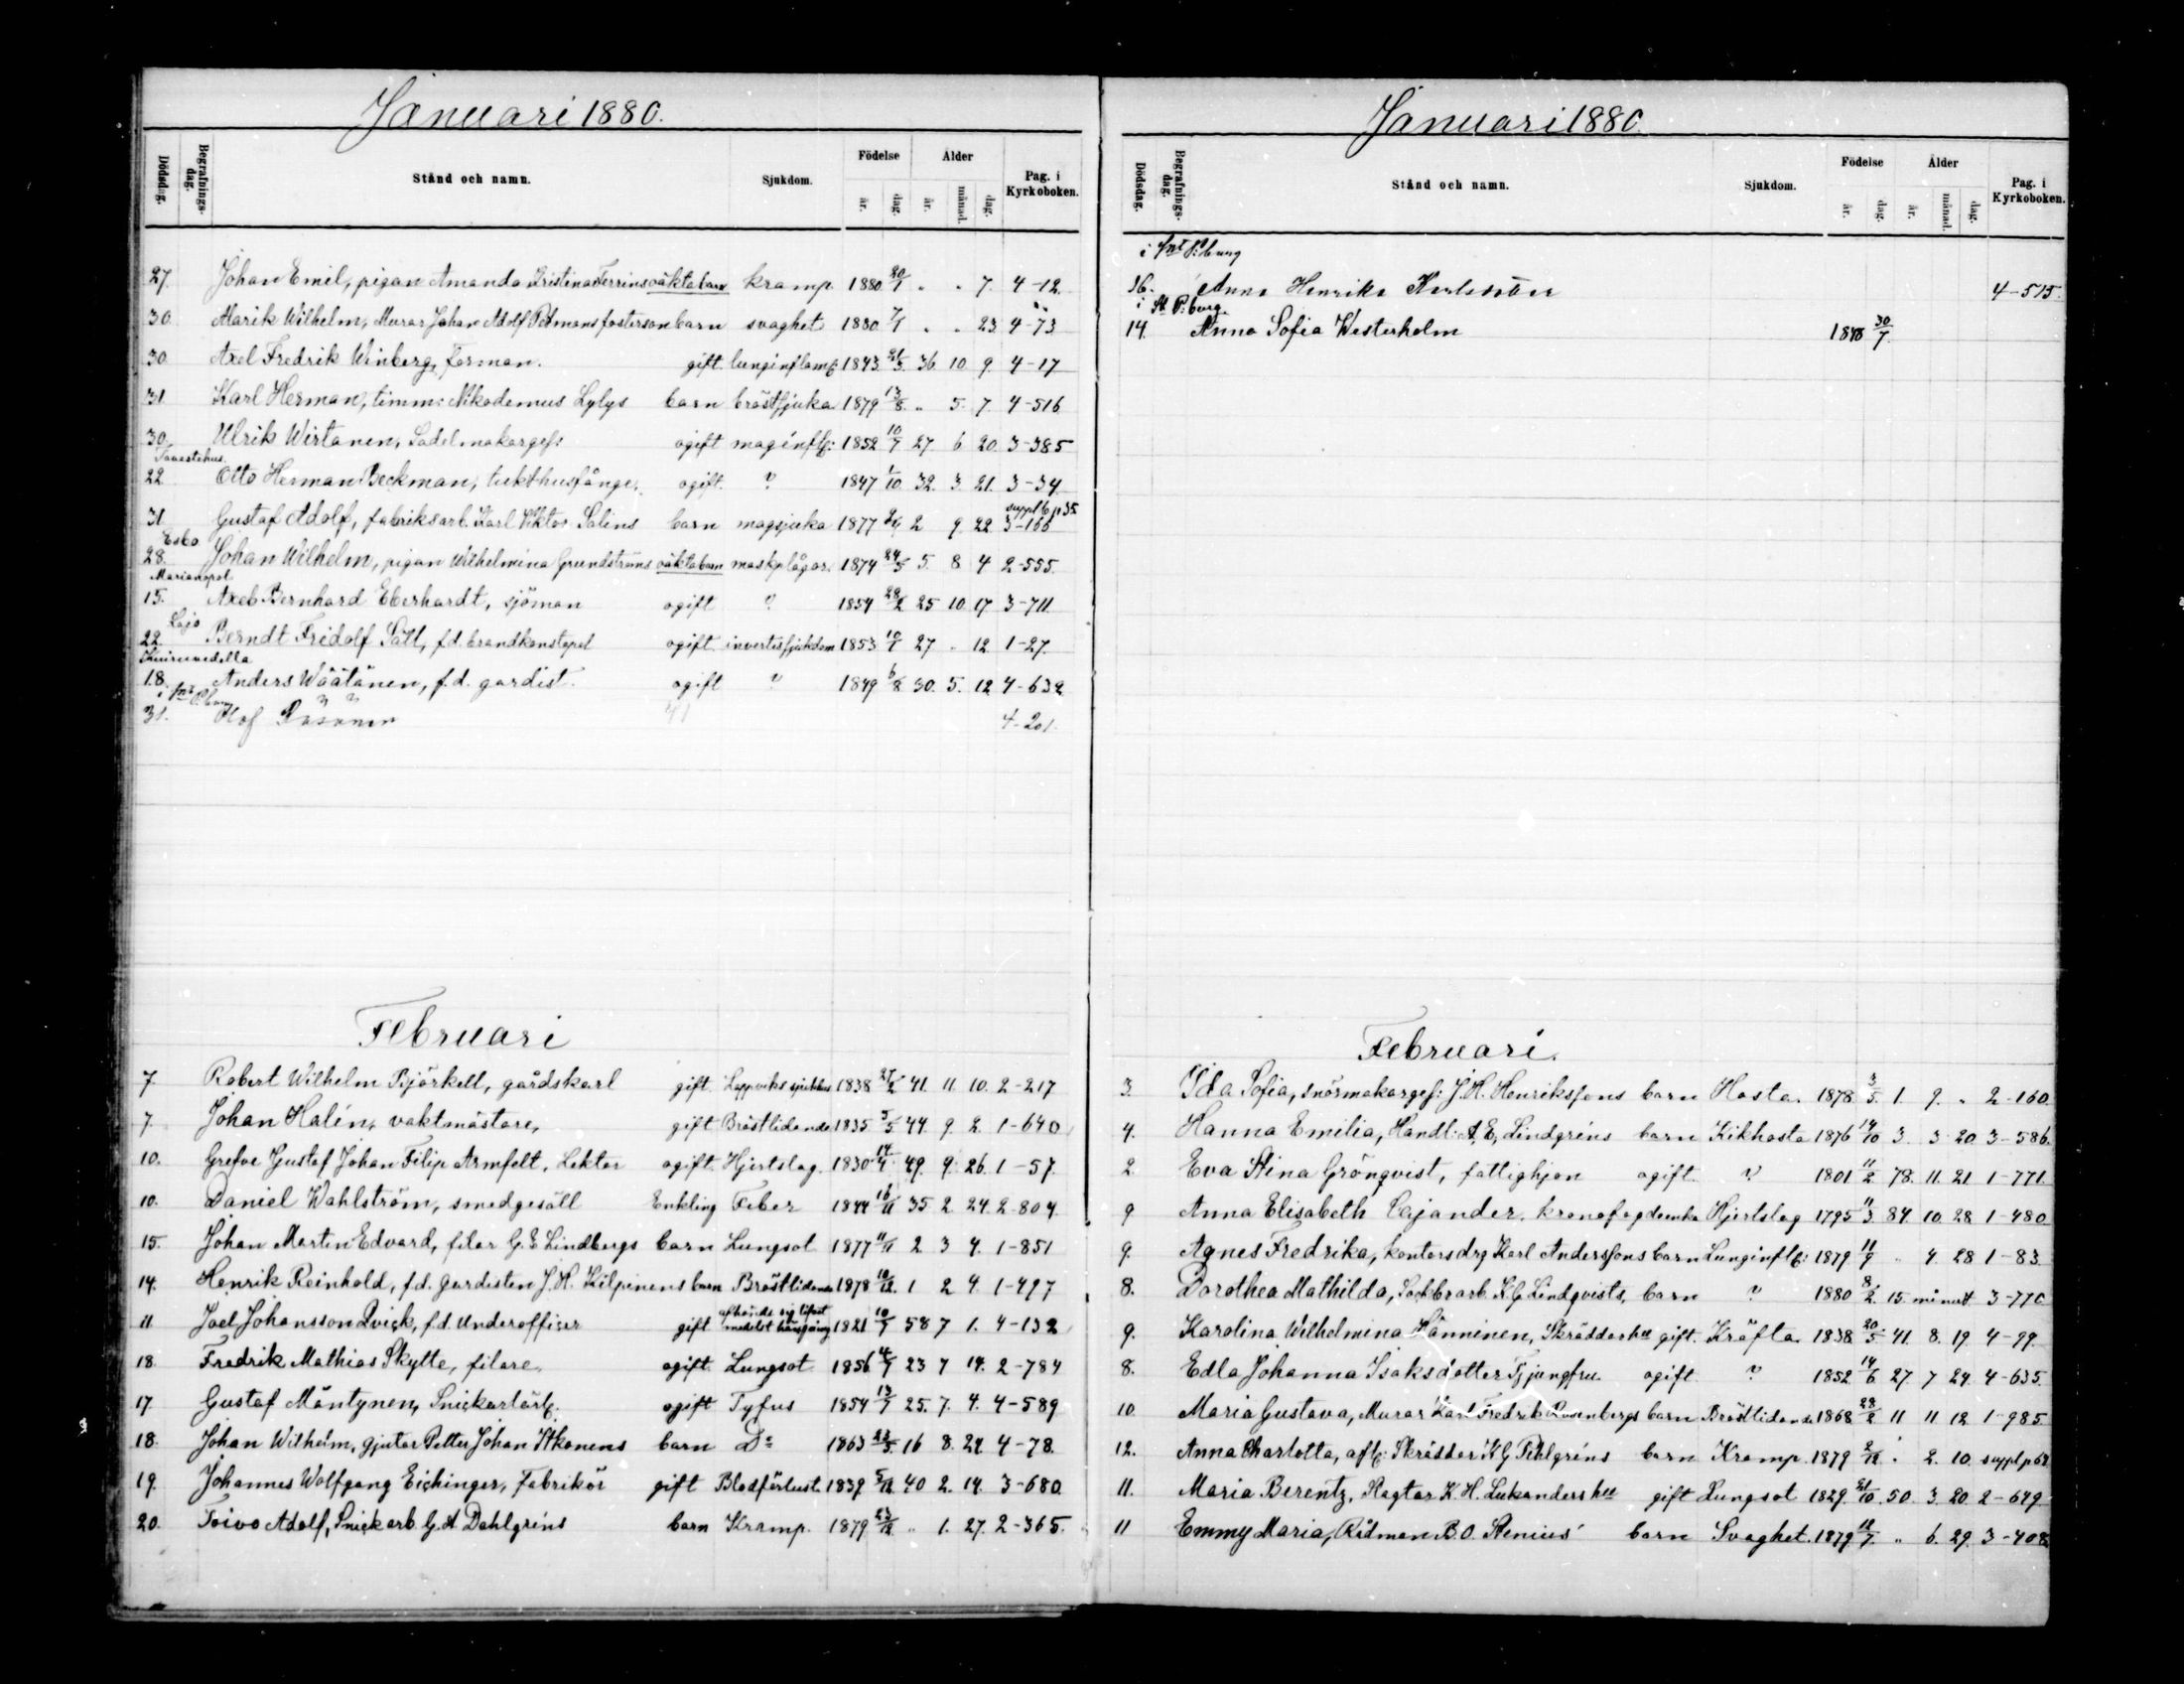 Januari 1880.
Dödsdag. Begrafnings-dag. Stånd och namn. Sjukdom. Födelse år. dag. Ålder år. månad. dag. Pag. i Kyrkoboken.
27. Johan Emil, pigan Amanda Kristina Ferrins oäkta barn kramp. 1880 20/1 " " 7. 4-12.
30 Marik Wilhelm, Murar Johan Adolf fosterson barn svaghet 1880 7/1 " " 23 4-73
30 Axel Fredrik Winberg, Forman. gift lunginflamf: 1843 21/3 36. 10 9 4-17
31 Karl Herman, timm: Nikodemus Lylys barn bröstsjuka 1879 13/8 " 5. 7. 4-516
30 Ulrik Wirtanen, Sadelmakargess ogift maginflf: 1852 10/7 27 6 20. 3-385
Tavastehus.
22 Otto Herman Beckman, tukthusfånge, ogift. ? 1847 1/10 32. 3. 21. 3-34
31 Gustaf Adolf, fabriksarb. Karl Viktor Salins barn magsjuka 1877 2 9. 22. 3-166 suppl 6 p 35
Esbo
28. Johan Wilhelm, pigan Wilhelmina Grundströms oäkta barn maskplågor. 1874 24/5 5. 8 4 2-555.
Marianopol
15. Axel Bernhard Eberhardt, sjöman ogift ? 1854 28/2 25 10. 17. 3-711
Lojo
22 Berndt Fridolf Säll, f.d. brandkonstapel ogift invertessjukdom 1853 10/1 27 " 12 1-27.
18. Anders Wäätänen, f.d. gardist. ogift ? 1849 6/8 30. 5. 12 4-632
i St P:burg
31. Olof Räsänen 4-201.
Februari
7. Robert Wilhelm Björkell, gårdskarl gift Lappviks sjukhus 1838 27/2 41. 11. 10. 2-217
7. Johan Halén, vaktmästare, gift Bröstlidande 1835 5/5 44. 9. 2. 1-640
10. Grefve Gustaf Johan Filip Armfelt, Lektor ogift Hjertslag. 1830 14/4 49. 9. 26. 1-57.
10. Daniel Wahlström, smedgesäll Enkling Feber 1844 16/11 35 2. 24. 2-804
15. Johan Martin Edvard, filar G. E Lindbergs barn Lungsot 1877 11/11 2 3 4. 1-851
14. Henrik Reinhold, f.d. gardisten J. H. Kilpinens barn Bröstlidande 1878 10/12 1 2 4 1-497
11 Joel Johansson Qvick, f.d. Underofficer gift afhände sig lifvet medelst hängning 1821 10/7 58 7 1. 4-132
18. Fredrik Mathias Skytte, filare, ogift Lungsot 1856 4/7 23 7 14. 2-784
17 Gustaf Mäntynen, Snickarlärl. ogift Tyfus 1854 13/7 25. 7. 4. 4-589
18. Johan Wilhelm, gjutar Petter Johan Itkonens barn Do 1863 16 8. 24. 4-78.
19. Johannes Wolfgang Eichinger, Fabrikör gift Blodförlust. 1839 5/12 40 2. 14. 3-680
20. Toivo Adolf, Snick.arb G. A Dahlgréns barn Kramp. 1879 23/12 " 1. 27. 2-365.
Januari 1880.
Dödsdag. Begrafnings-dag. Stånd och namn. Sjukdom. Födelse år. dag. Ålder år. månad. dag. Pag. i Kyrkoboken.
i St P:burg
16. Anna Henrika Karlsson 4-515.
i St P:burg.
14. Anna Sofia Westerholm 1878 30/7
Februari.
3. Ida Sofia, snörmakargess: J. H. Henrikssons barn Hosta. 1878. 3/5. 1. 9. " 2-160.
4. Hanna Emilia, Handl: A. E, Lindgréns barn Kikhosta 1876 14/10 3. 3. 20 3-586.
2. Eva Stina Grönqvist, fattighjon ogift. ? 1801 11/2 78. 11. 21 1-771.
9 Anna Elisabeth Cajander. kronofogdeenka Hjertslag 1795 11/3 84. 10. 28 1-480
9. Agnes Fredrika, kontorsdrg Karl Anderssons barn Lunginflf: 1879. 11/9 " 4. 28 1-83.
8. Dorothea Mathilda, Sockbr.arb. K. G. Lindqvists, barn ? 1880 8/2 15. minut 3-770
9. Karolina Wilhelmina Hänninen, Skräddarhu gift. Kräfta. 1838 20/5 41. 8. 19. 4-99.
8. Edla Johanna Isaksdotter Tjjungfru. ogift ? 1852 14/6 27. 7 24. 4-635.
10. Maria Gustava, Murar Karl Fredrik Rosenbergs barn Bröstlidande 1868 28/2 11 11 12 1-985
12. Anna Charlotta, afl: Skräddar K G Pihlgréns barn Kramp. 1879 2/12 " 2. 10. suppl p 68
11. Maria Berentz, Ragtar K. H. Lukanders hu gift Lungsot 1829. 21/10. 50. 3. 20. 2-649
11 Emmy Maria, Rådman B. O. Stenius' barn Svaghet. 1879 12/7. " 6. 29. 3-408